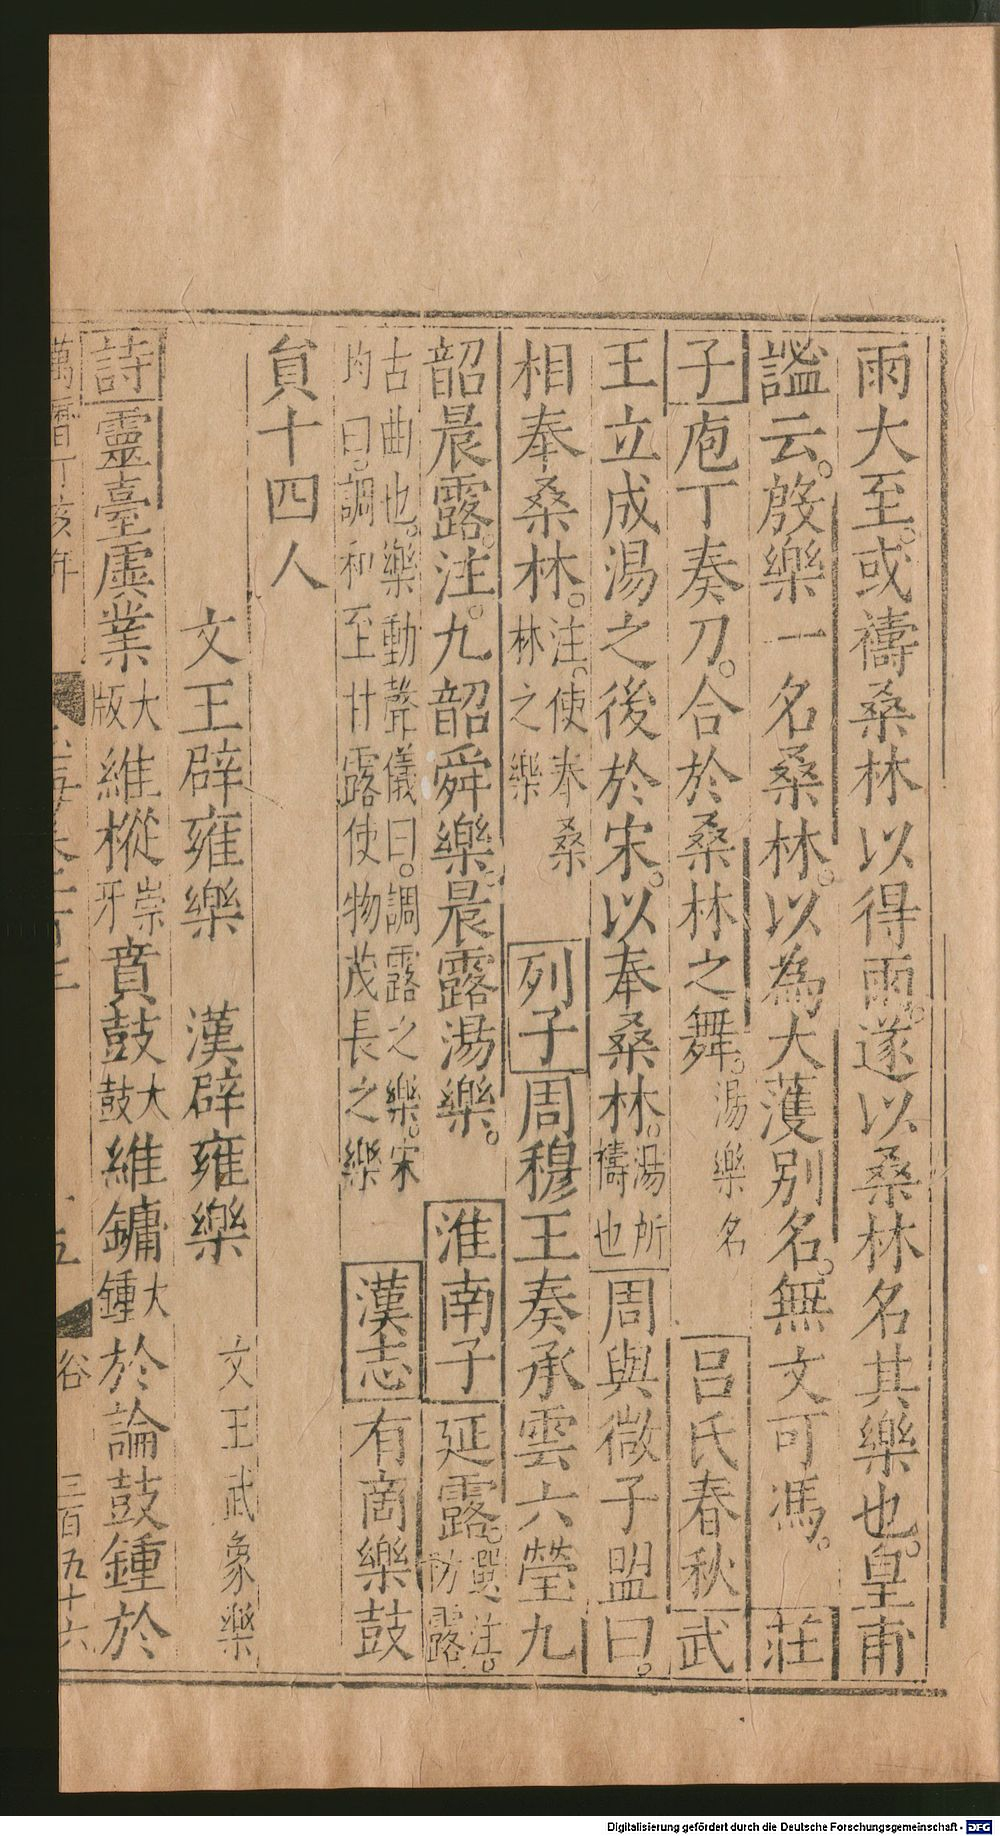 雨大至。或禱桑林以得雨。遂以桑林名其樂也。皇甫
謐云。殷樂一名桑林。以為大濩別名。無文可馮。莊
子庖丁奏刀。合於桑林之舞。湯樂名 呂氏春秋武
王立成湯之後於宋。以奉桑林。湯所禱也 周與微子盟曰。
相奉桑林。注。使奉桑林之樂 列子周穆王奏承雲六瑩九
韶晨露。注。九韶舜樂。晨露湯樂。 淮南子延露。選注。防露
古曲也。樂動聲儀曰。調露之樂。宋均曰。調和至甘露使物茂長之樂 漢志有商樂鼓
員十四人
文王辟雍樂 漢辟雍樂 文王武象樂
詩靈臺虡業大版維樅崇牙賁鼓大鼓維鏞大鍾於論鼓鍾於
萬曆丁亥年 五 谷 三百五十六
Digitalisierung gefördert durch die Deutsche Forschungsgemeinschaft - DFG